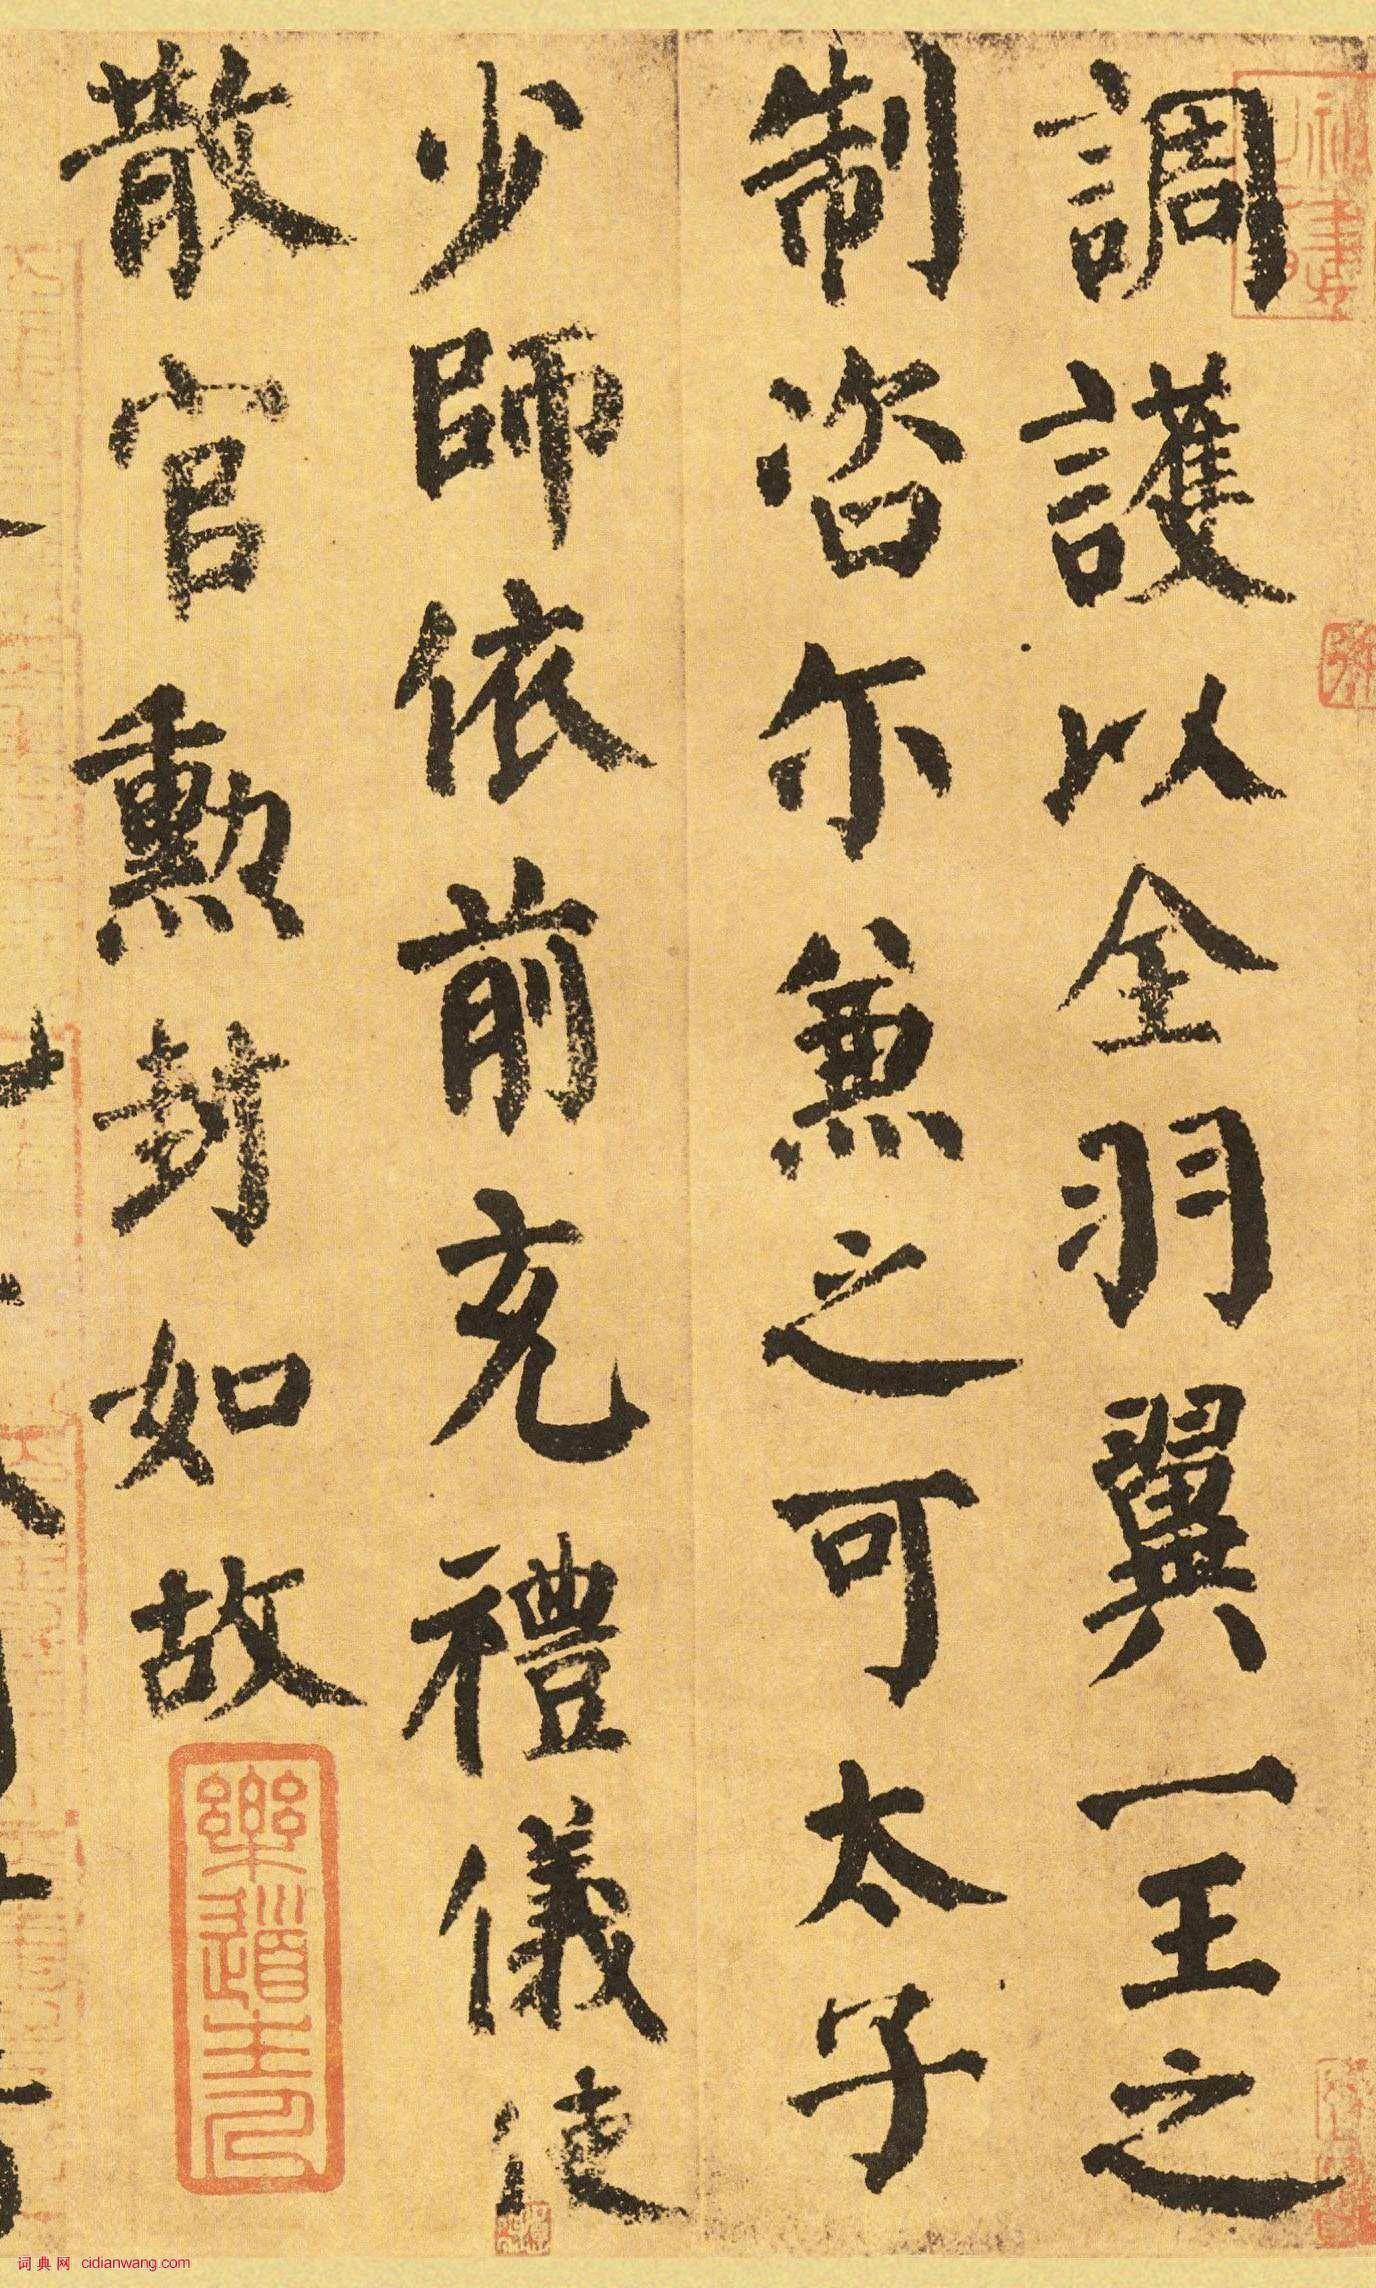 調護以全羽翼一王之
制咨尓兼之可太子
少師依前充禮儀使
散官勲封如故
樂道主人
词典网 cidianwang.com